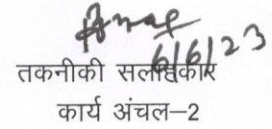 6/6/23
तकनीकी सलाहकार
कार्य अंचल–2